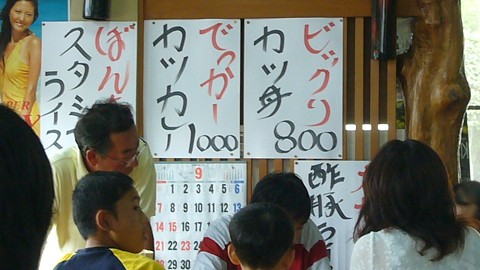 ビックリ
カツ丼
800
でっかー
カツカレー
1000
ぼん
スタミ
ライス
酢豚
9
1 2 3 4 5 6
7 8 9 10 11 12 13
14 15 16 17 18
21 22 23 24
28 29 30